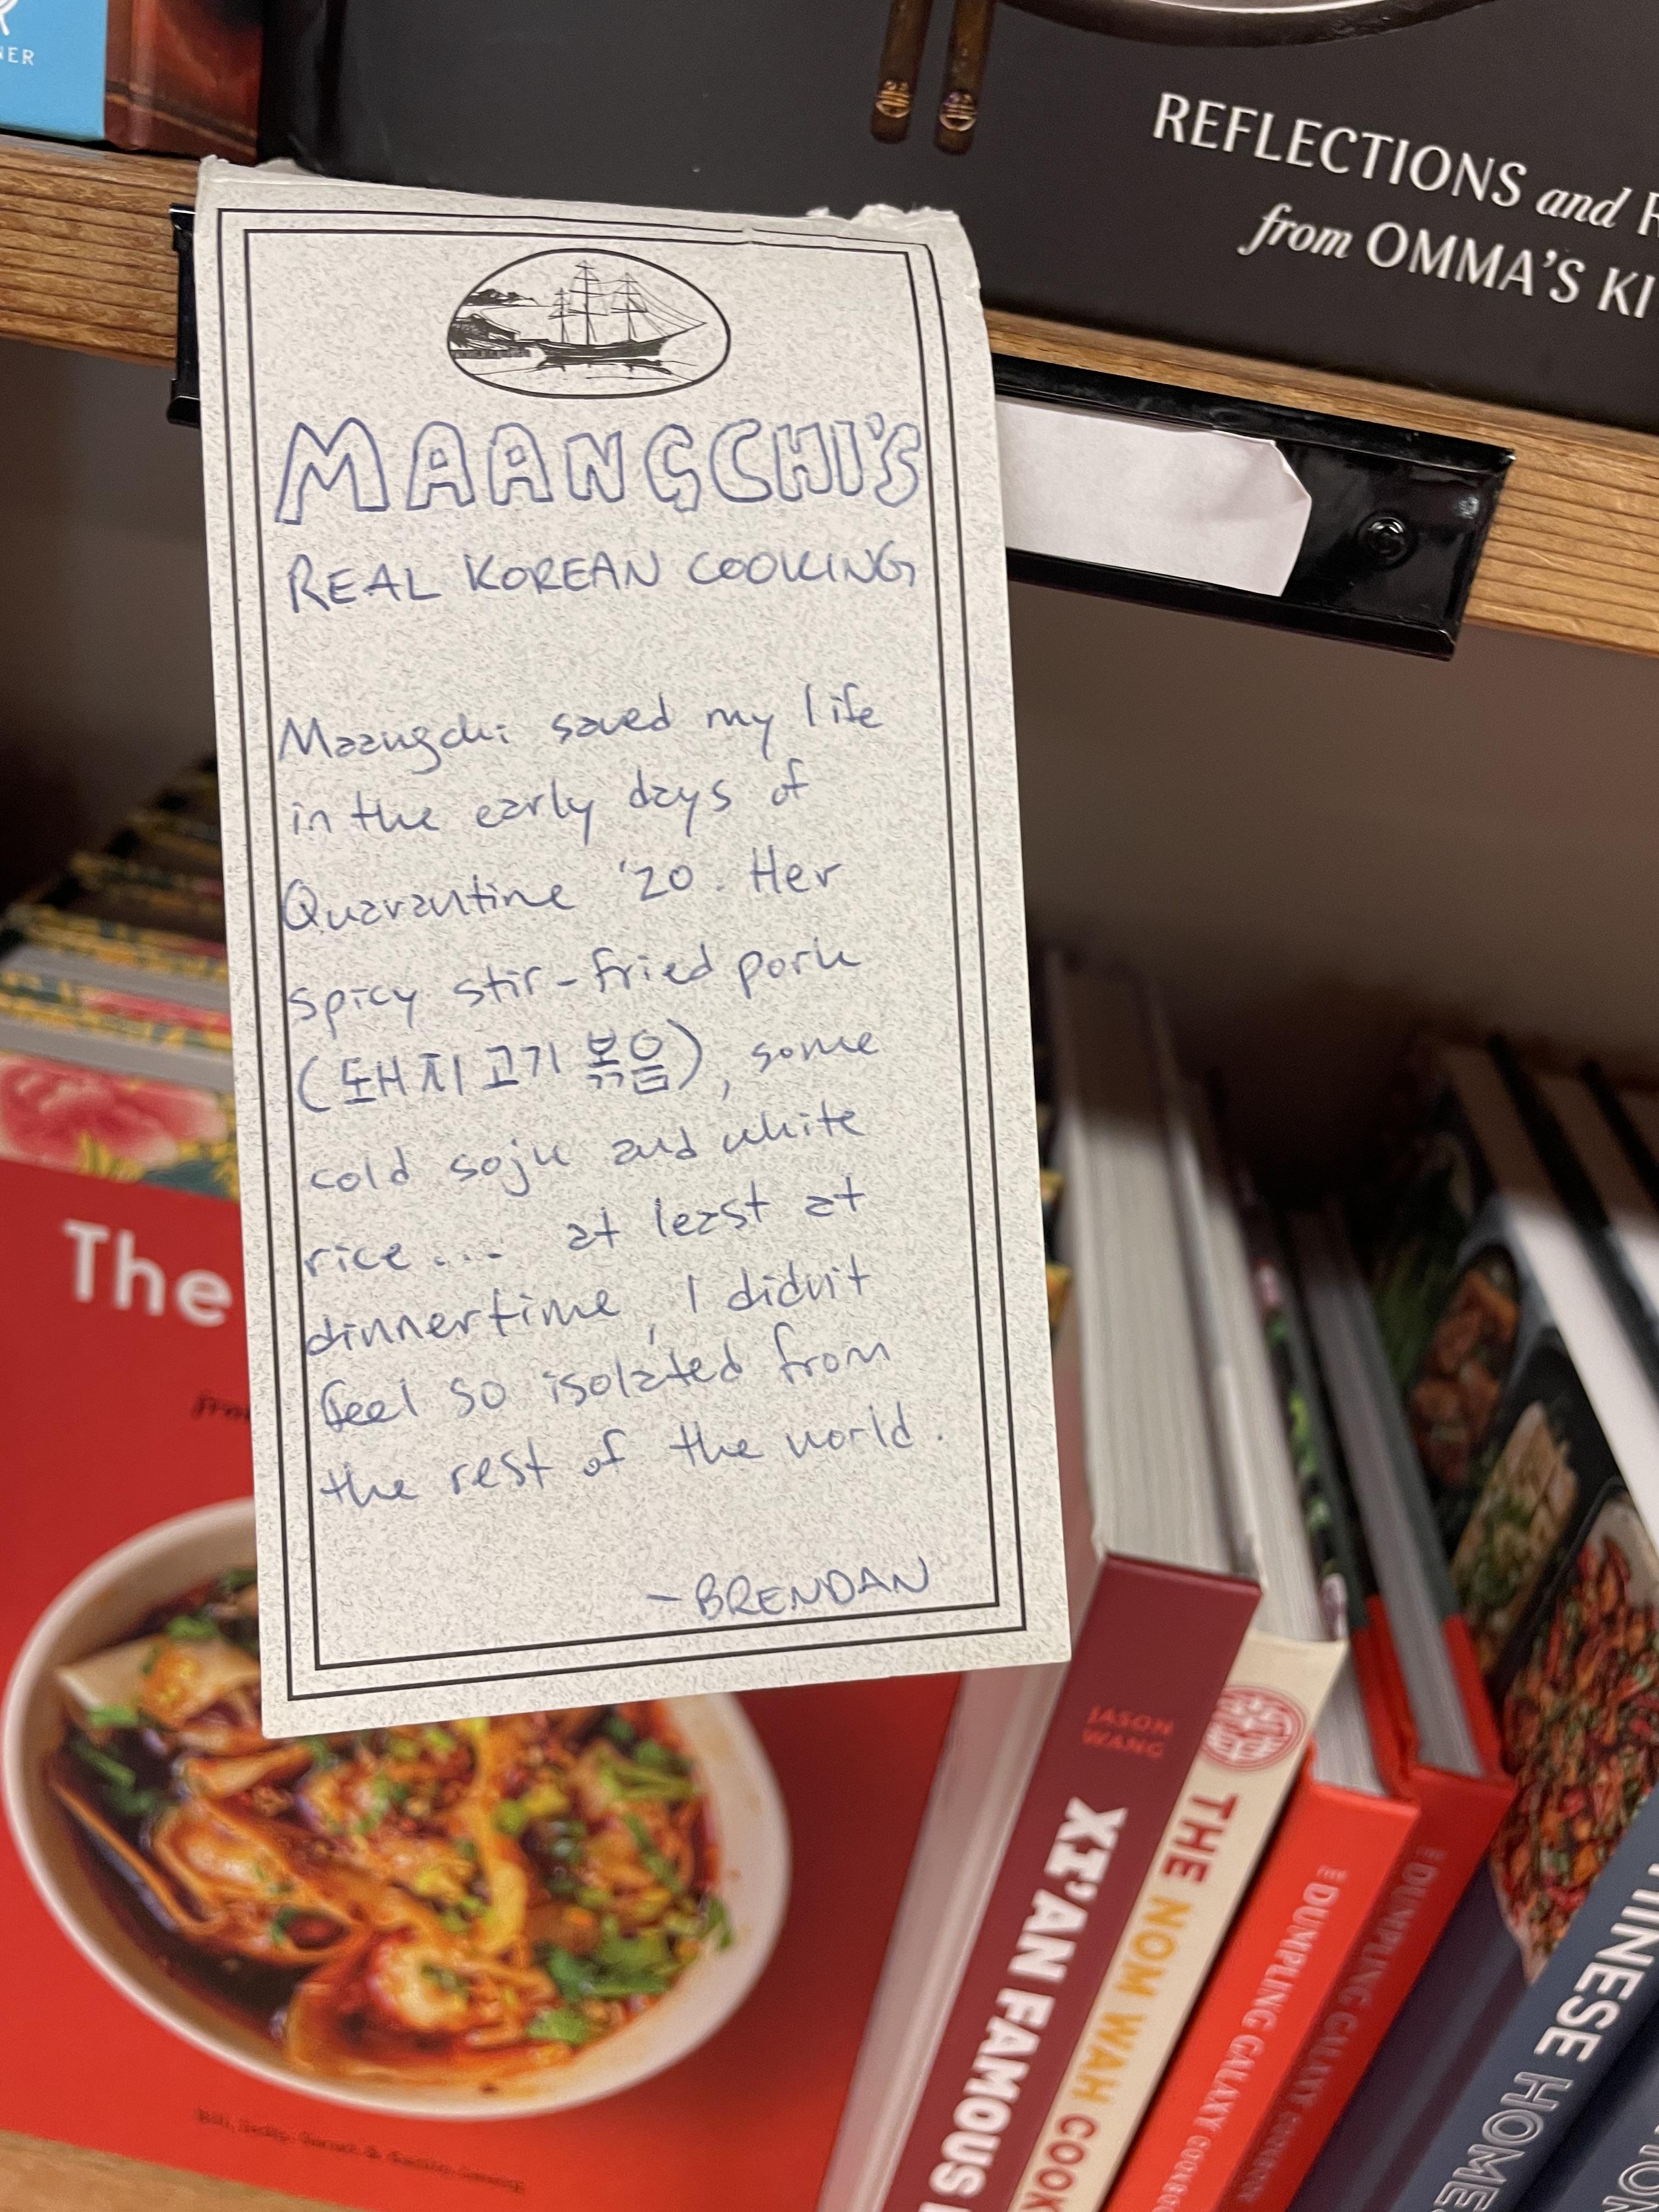 NER
REFLECTIONS and R
from OMMA'S KI
MAANGCHI'S
REAL KOREAN COOKING
Maangchi saved my life
in the early days of
Quarantine '20. Her
spicy stir-fried pork
(돼지고기 볶음), some
cold soju and white
rice.... at least at
dinnertime, I didn't
feel so isolated from
the rest of the world.
-BRENDAN
The
from
Bill, Judy, Sarah & Kaitlin Leung
JASON
WANG
XI'AN FAMOUS
THE NOM WAH COOK
THE DUMPLING GALAXY COOKBOOK
THE DUMPLING GALAXY COOKBOOK
HINESE HOME